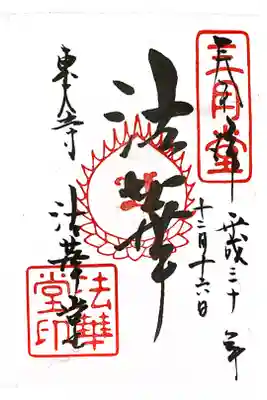 三月堂
平成三十年
十二月十六日
法華
東大寺
法華堂
法華
堂印